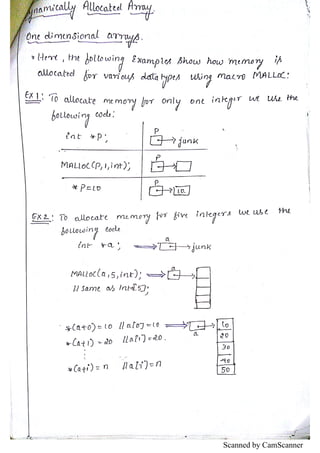 Dynamically Allocated Array
One dimensional arrays.
* Here, the following Examples show how memory is
allocated for various data types using macro MALLOC:
Ex 1: To allocate memory for only one integer we use the
following code:
int *p;
P
junk
MALLOC(p,1,int);
P
*p=10
P
10
Ex 2: To allocate memory for five integers we use the
following code
int *a;
a
junk
MALLOC(a,5,int);
a
// same as int a[5];
*(a+0)=10 // a[0]=10
a
10
*(a+1)=20 // a[1]=20.
20
30
40
*(a+i)=n // a[i]=n
50
Scanned by CamScanner